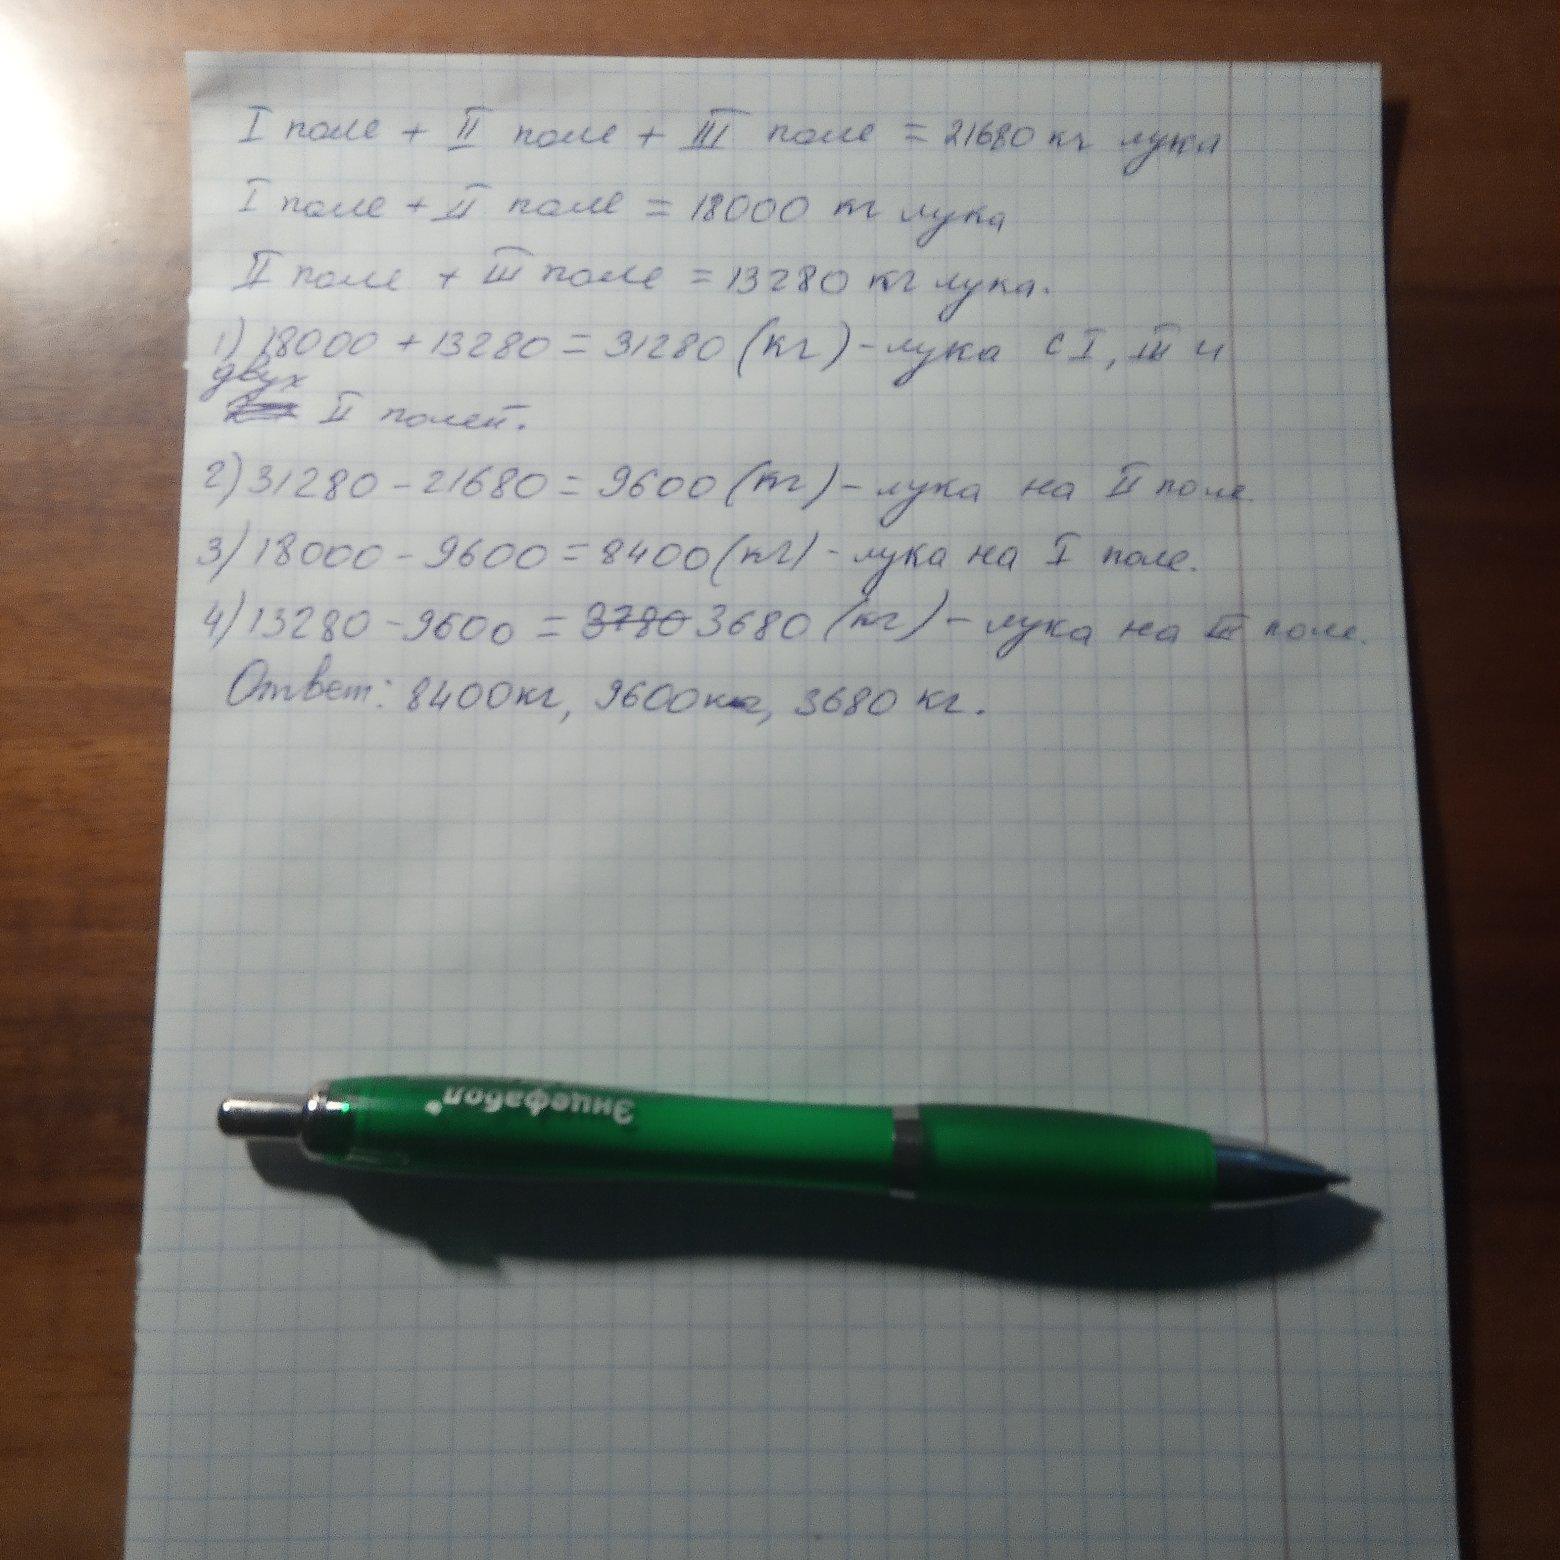 I поле + II поле + III поле = 21680 кг лука
I поле + II поле = 18000 кг лука
II поле + III поле = 13280 кг лука.
1) 18000 + 13280 = 31280 (кг) - лука с I, III и
двух
II полей.
2) 31280 - 21680 = 9600 (кг) - лука на II поле.
3) 18000 - 9600 = 8400 (кг) - лука на I поле.
4) 13280 - 9600 = 3780 3680 (кг) - лука на III поле.
Ответ: 8400кг, 9600кг, 3680 кг.
Энцефабол®